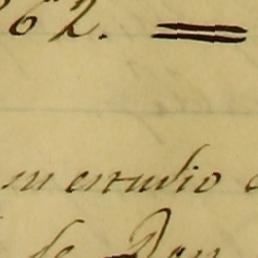 62. =
mi estudio
de Don